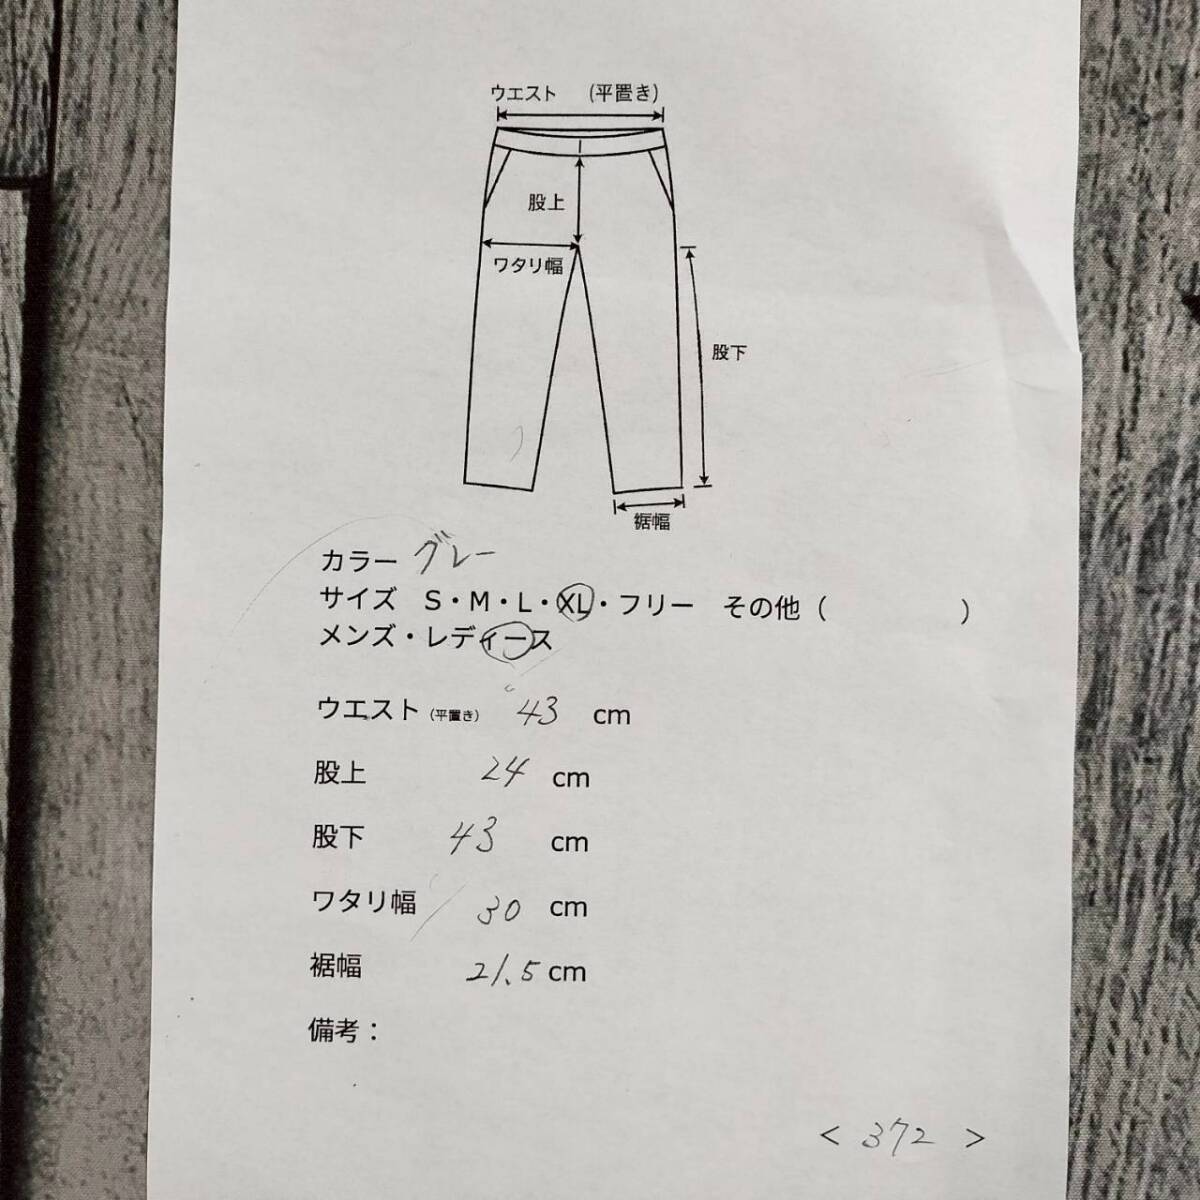 ウエスト (平置き)
股上
ワタリ幅
股下
裾幅
カラー グレー
サイズ S・M・L・XL・フリー その他 ( )
メンズ・レディース
ウエスト (平置き) 43 cm
股上 24 cm
股下 43 cm
ワタリ幅 30 cm
裾幅 21.5 cm
備考：
< 372 >